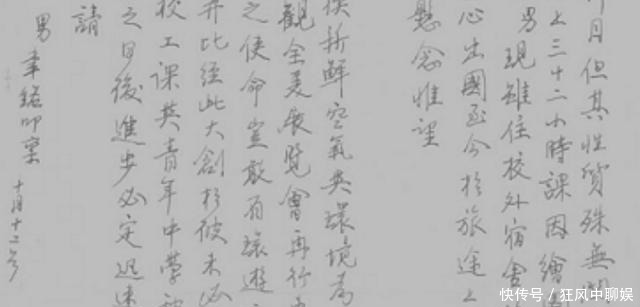 月但其性質殊無
上三十二小時課因繪
男現雖住校外宿舍
心出國至今於旅途上
懸念惟望
新鮮空氣與環境為
觀全美展覽會再行
之使命豈敢有環遊
此經此大創於彼未必
校工課與青年中學
之日後進步必定迅速
請
男 銘叩稟 十月十二号
快传号 / 狂风中聊娱